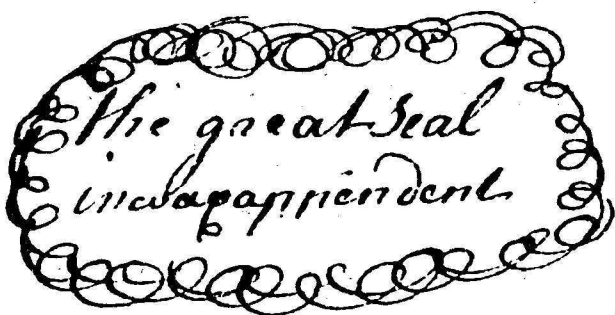 the great Seal
in wax appendent